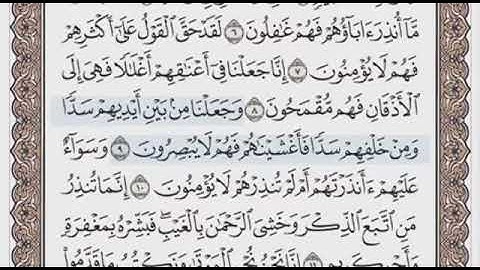 مَّآ أُنذِرَ ءَابَآؤُهُمْ فَهُمْ غَٰفِلُونَ ٦ لَقَدْ حَقَّ ٱلْقَوْلُ عَلَىٰٓ أَكْثَرِهِمْ
فَهُمْ لَا يُؤْمِنُونَ ٧ إِنَّا جَعَلْنَا فِىٓ أَعْنَٰقِهِمْ أَغْلَٰلًا فَهِىَ إِلَى
ٱلْأَذْقَانِ فَهُم مُّقْمَحُونَ ٨ وَجَعَلْنَا مِنۢ بَيْنِ أَيْدِيهِمْ سَدًّا
وَمِنْ خَلْفِهِمْ سَدًّا فَأَغْشَيْنَٰهُمْ فَهُمْ لَا يُبْصِرُونَ ٩ وَسَوَآءٌ
عَلَيْهِمْ ءَأَنذَرْتَهُمْ أَمْ لَمْ تُنذِرْهُمْ لَا يُؤْمِنُونَ ١٠ إِنَّمَا تُنذِرُ
مَنِ ٱتَّبَعَ ٱلذِّكْرَ وَخَشِىَ ٱلرَّحْمَٰنَ بِٱلْغَيْبِ ۖ فَبَشِّرْهُ بِمَغْفِرَةٍ
وَأَجْرٍ كَرِيمٍ ١١ إِنَّا نَحْنُ نُحْىِ ٱلْمَوْتَىٰ وَنَكْتُبُ مَا قَدَّمُوا۟